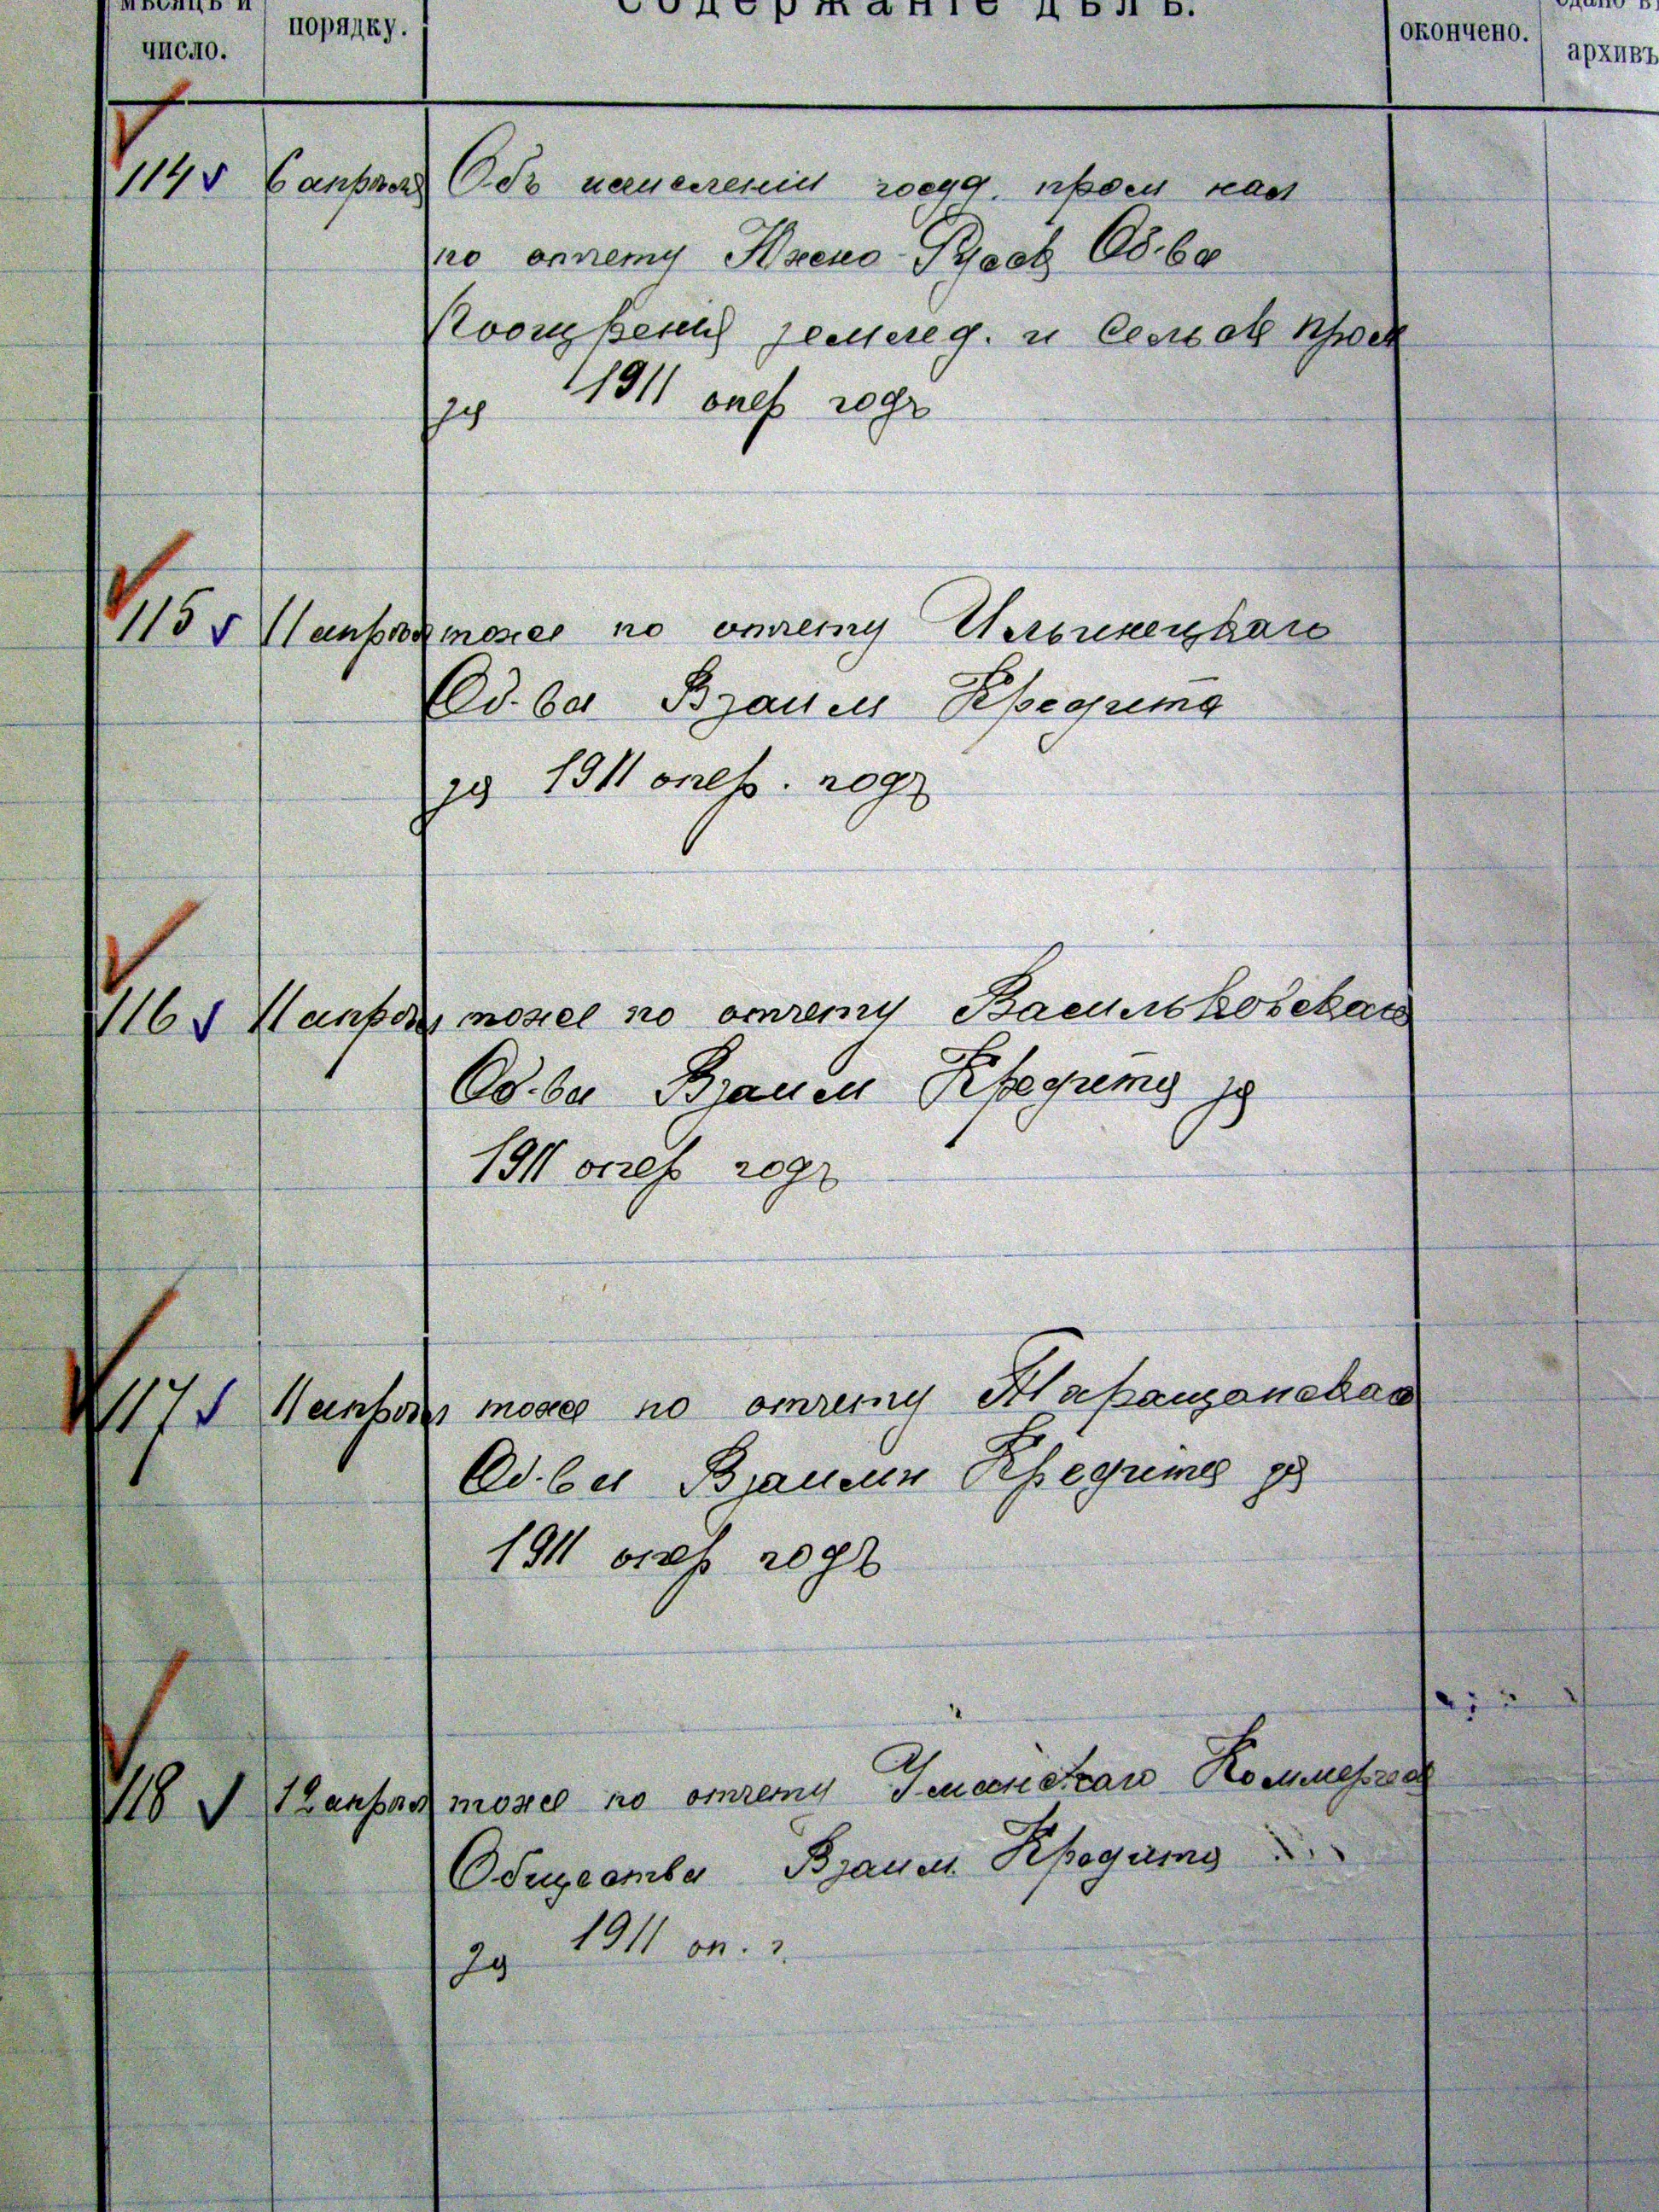 мѣсяцъ и
число.
порядку.
Содержаніе дѣлъ.
окончено.
Сдано въ
архивъ
114 6 апрѣля Объ исчисленіи госуд. пром нал
по отчету Южно-Русск Об-ва
Поощренія землед. и Сельск пром
за 1911 опер годъ
115 11 апрѣля тоже по отчету Ильинецкаго
Об-ва Взаим Кредита
за 1911 опер. годъ
116 11 апрѣля тоже по отчету Васильковскаго
Об-ва Взаим Кредита за
1911 опер годъ
117 11 апрѣля тоже по отчету Таращанскаго
Об-ва Взаимн Кредита за
1911 опер годъ
118 12 апрѣля тоже по отчету Уманскаго Коммерческ
Общества Взаим. Кредита
За 1911 оп. г.